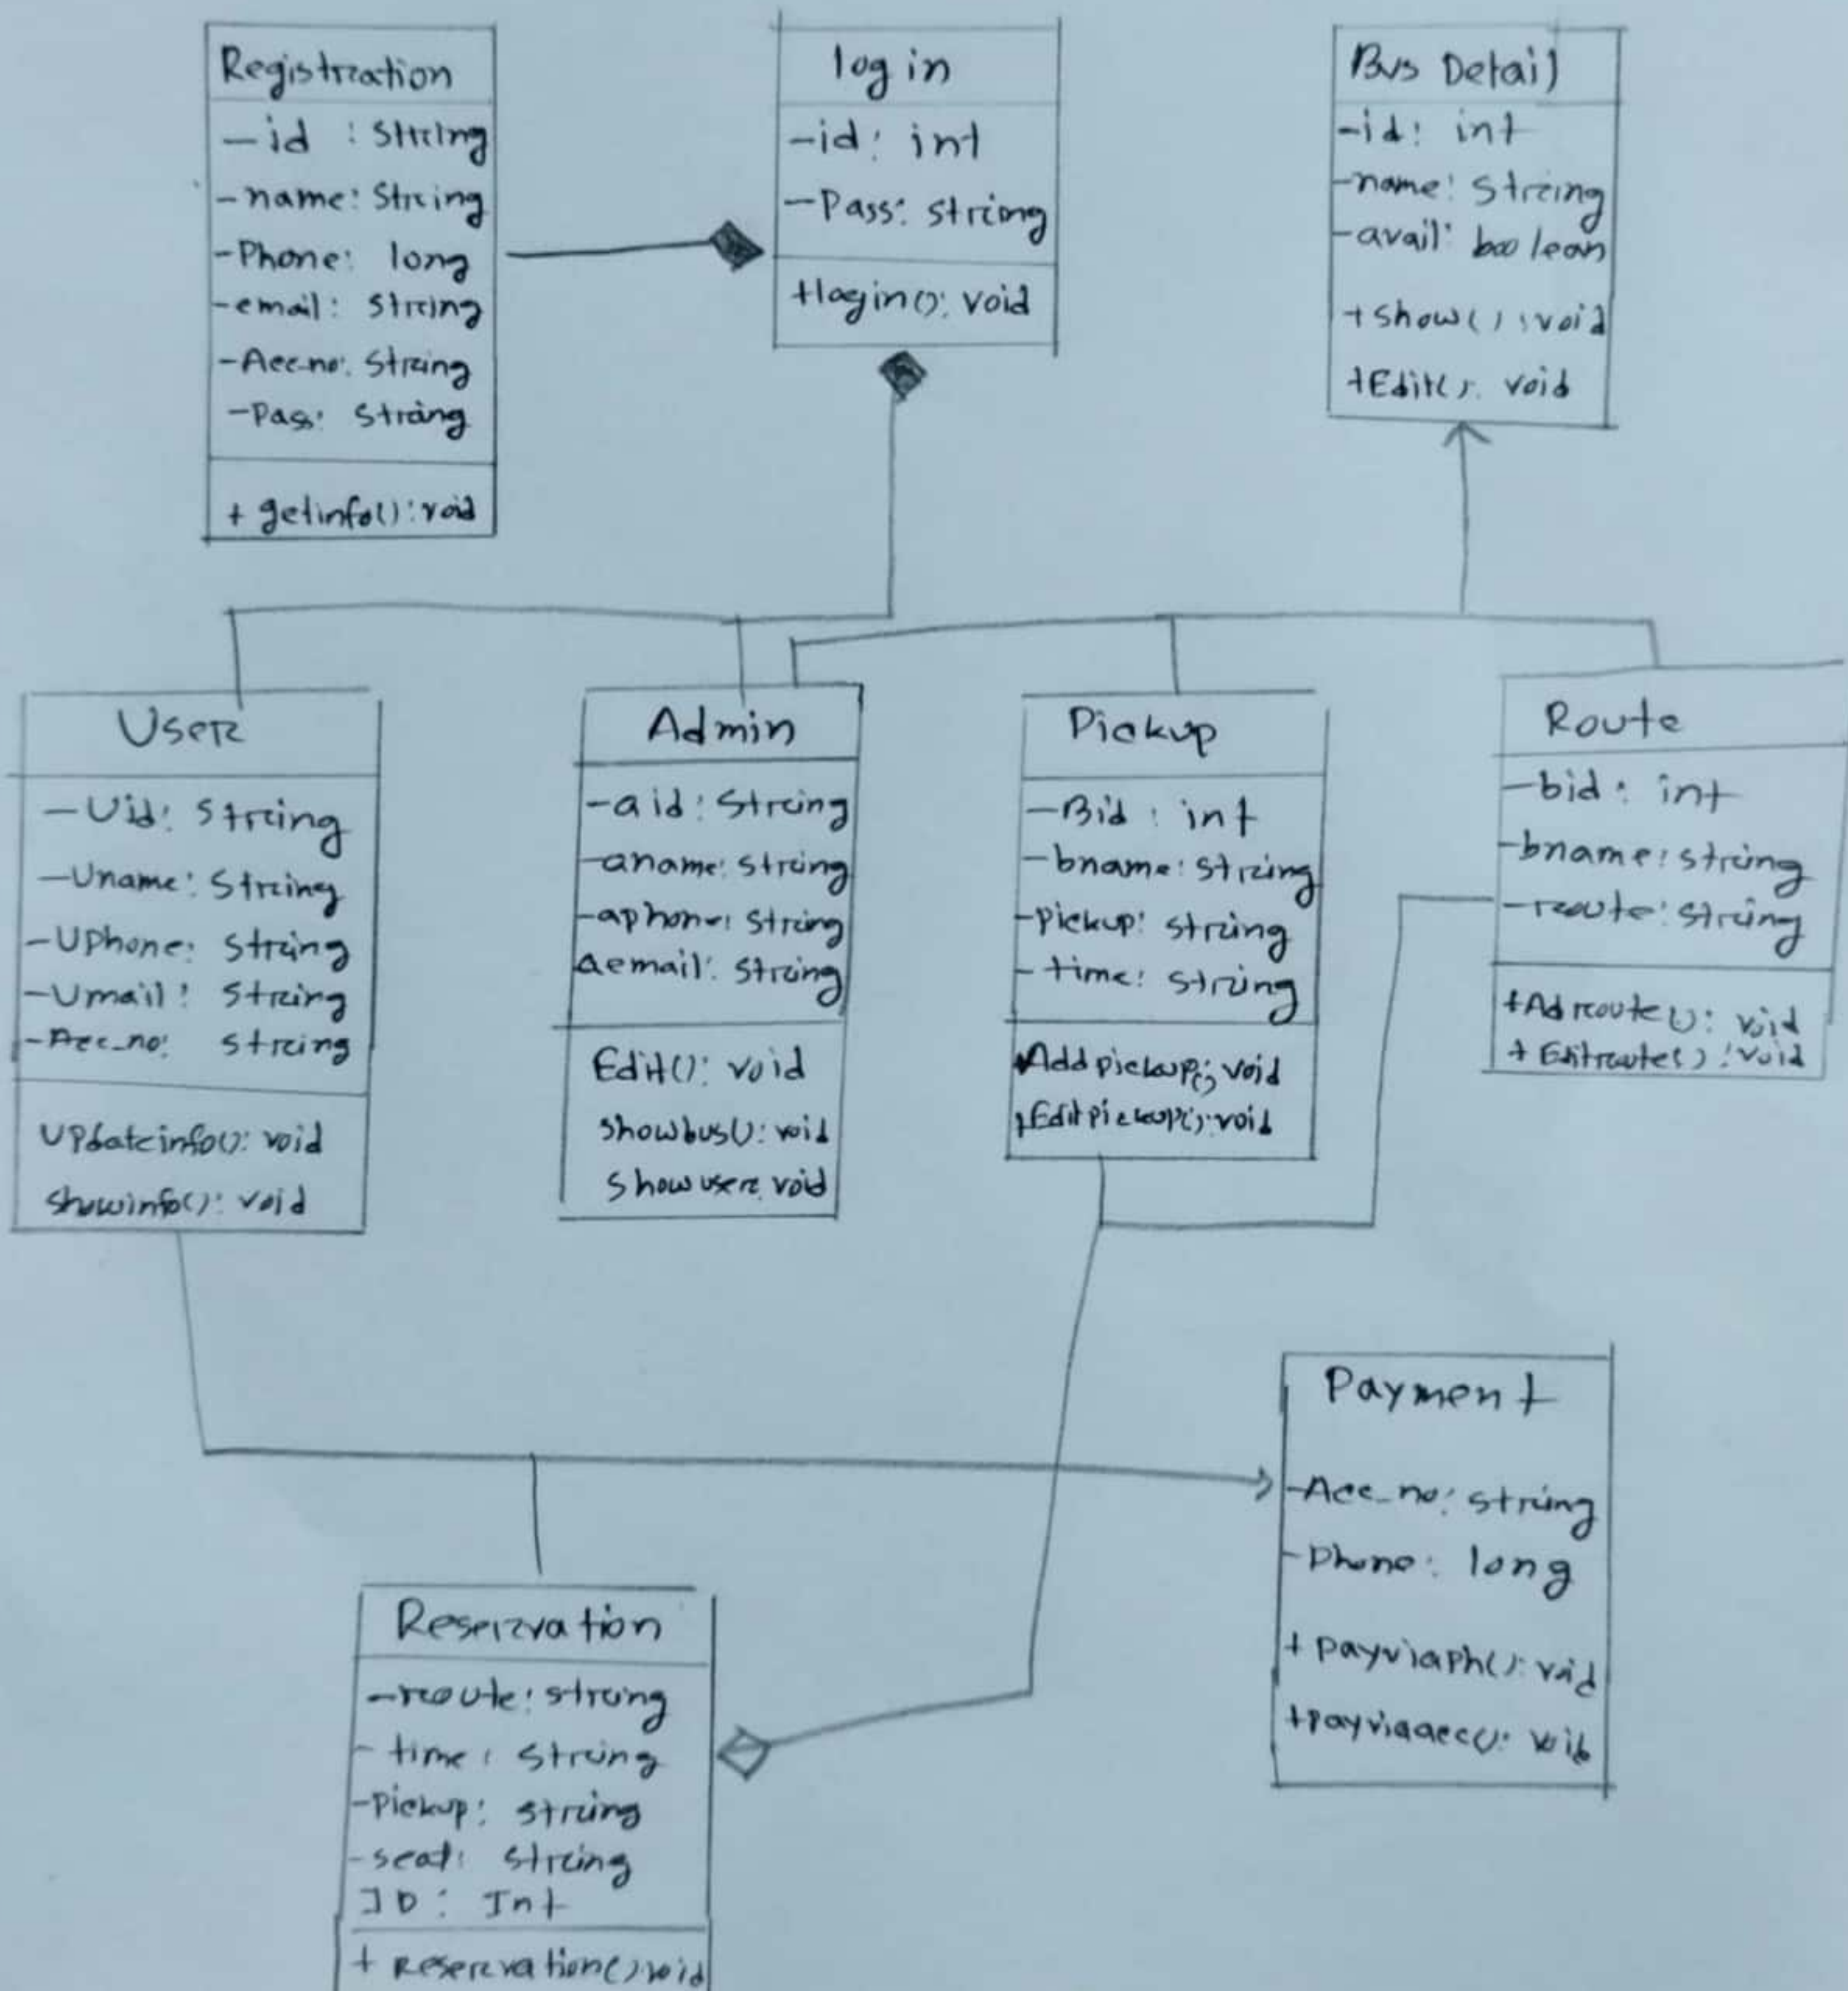 Registration
-id : String
-name: String
-Phone: long
-email: String
-Acc-no: String
-Pass: String
+ getinfo(): void
log in
-id: int
-Pass: string
+login(): void
Bus Detail
-id: int
-name: String
-avail: boolean
+ Show() : void
+Edit(): void
User
-Uid: string
-Uname: String
-UPhone: string
-Umail: string
-Acc_no: string
UPdateinfo(): void
showinfo(): void
Admin
-aid: String
-aname: string
-aphone: string
aemail: string
Edit(): void
showbus(): void
Showuser: void
Pickup
-Bid : int
-bname: string
-pickup: string
-time: string
+Addpickup(): void
+Editpickup(): void
Route
-bid: int
-bname: string
-route: string
+Adroute(): void
+ Editroute() : void
Payment
-Acc_no: string
-Phone: long
+ payviaph(): void
+payviaacc(): void
Reservation
-route: string
-time: string
-Pickup: string
-seat: string
ID: Int
+ Reservation() void